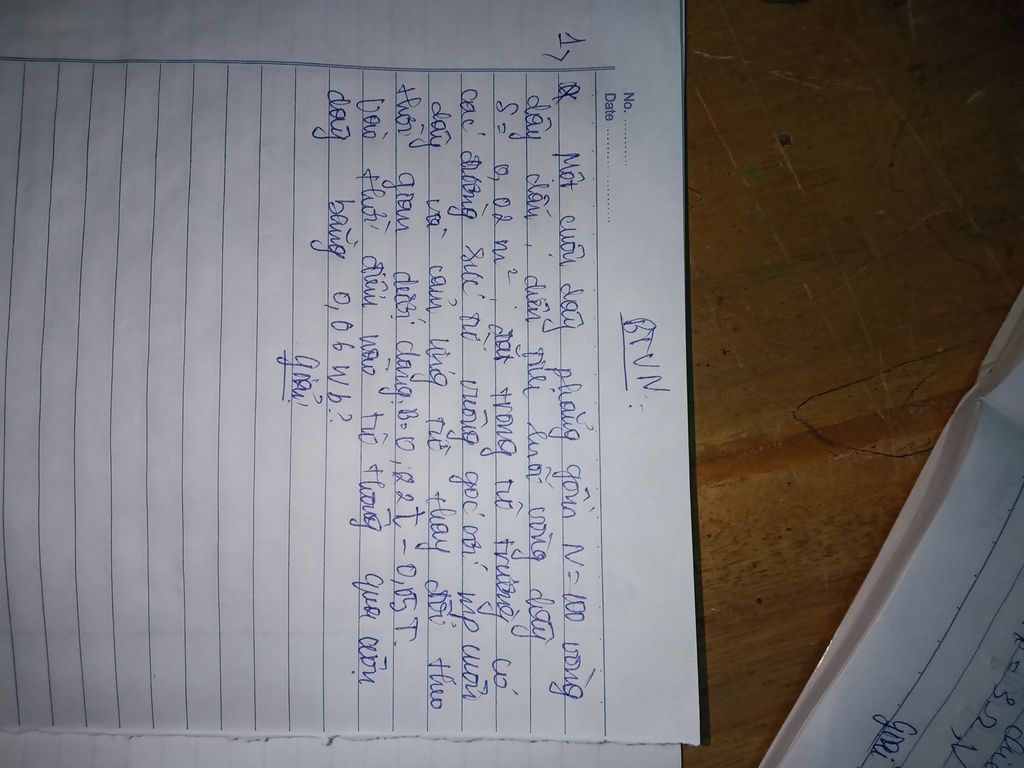 No. ............
Date ..................
BTVN:
1, Một cuộn dây phẳng gồm N=100 vòng
dây dẫn, diện tích mỗi vòng dây
S = 0,02 m², đặt trong từ trường có
các đường sức từ vuông góc với mp cuộn
dây và cảm ứng từ thay đổi theo
thời gian dưới dạng B=0,22t - 0,05T.
Vào thời điểm nào từ thông qua cuộn
dây bằng 0,06 Wb?
Giải
Giải